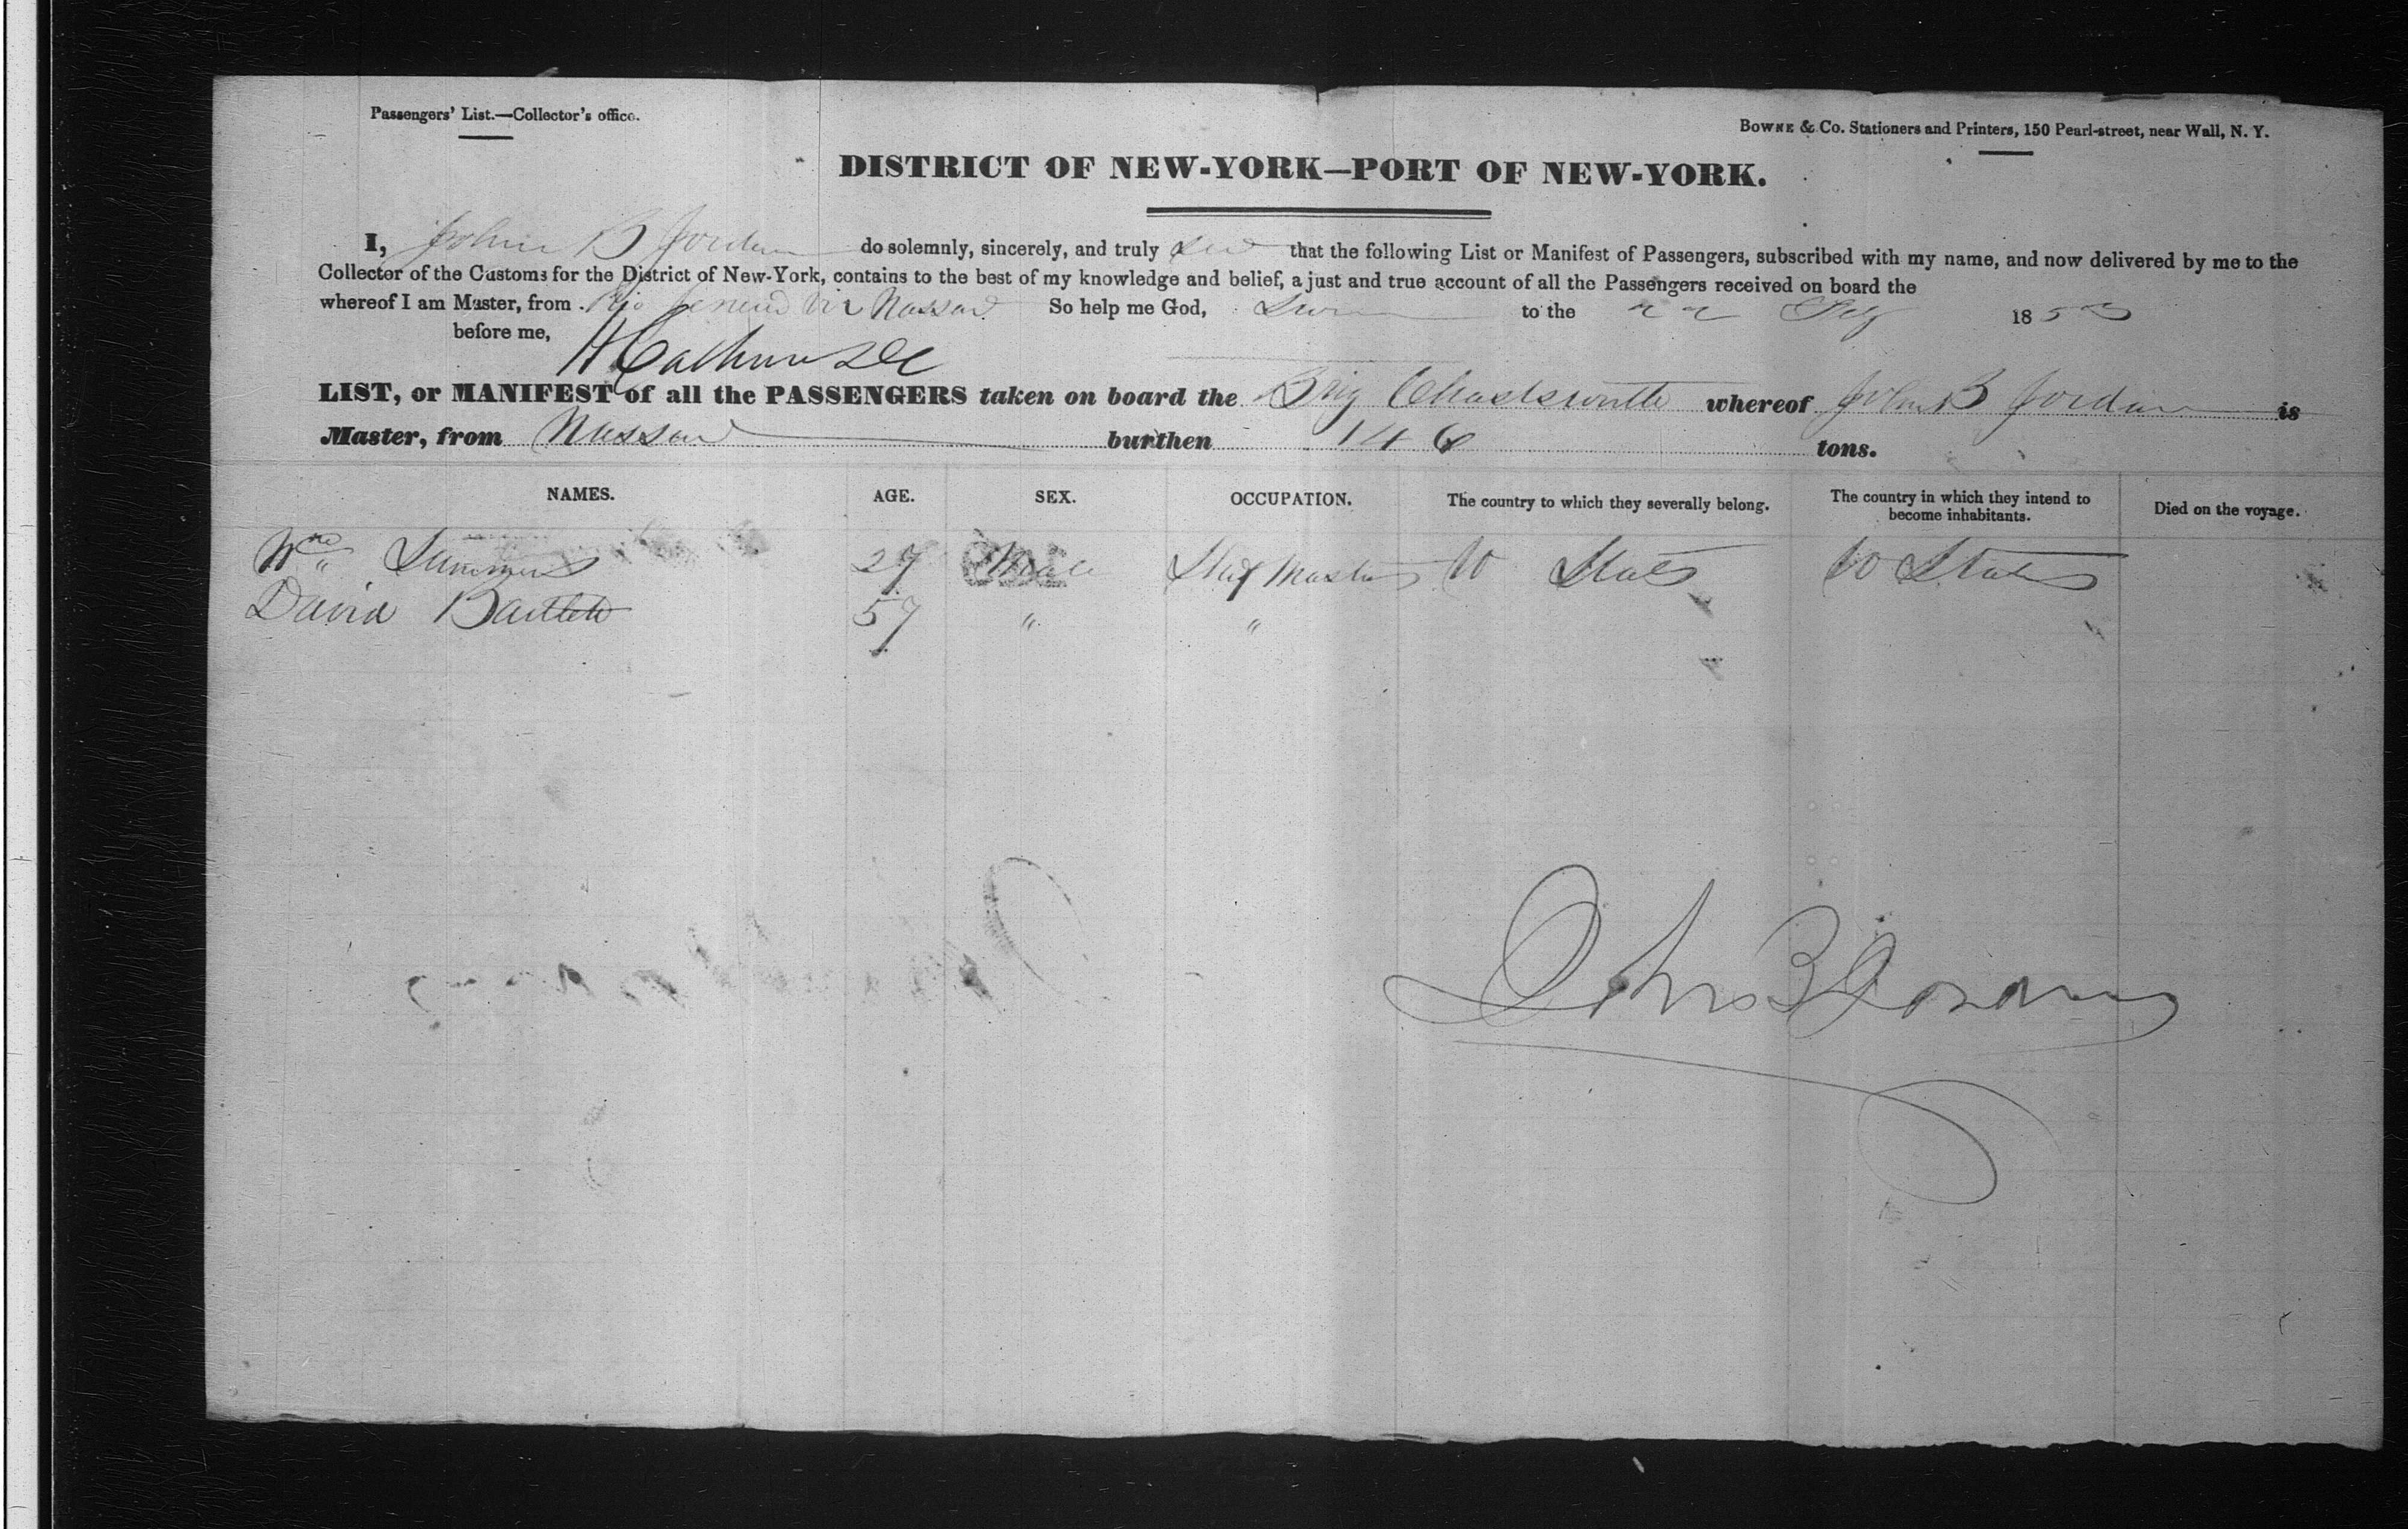 Passengers' List.—Collector's office.
BOWNE & Co. Stationers and Printers, 150 Pearl-street, near Wall, N. Y.
DISTRICT OF NEW-YORK—PORT OF NEW-YORK.
I, John B Jordan do solemnly, sincerely, and truly that the following List or Manifest of Passengers, subscribed with my name, and now delivered by me to the
Collector of the Customs for the District of New-York, contains to the best of my knowledge and belief, a just and true account of all the Passengers received on board the
whereof I am Master, from Rio Nassau So help me God, to the 22 1853
before me,
LIST, or MANIFEST of all the PASSENGERS taken on board the Brig Chatsworth whereof John B Jordan is
Master, from Nassau burthen 146 tons.
NAMES. AGE. SEX. OCCUPATION. The country to which they severally belong. The country in which they intend to become inhabitants. Died on the voyage.
Wm 27 Male Ship Master U States U States
David Bartlett 57 " "
John B Jordan